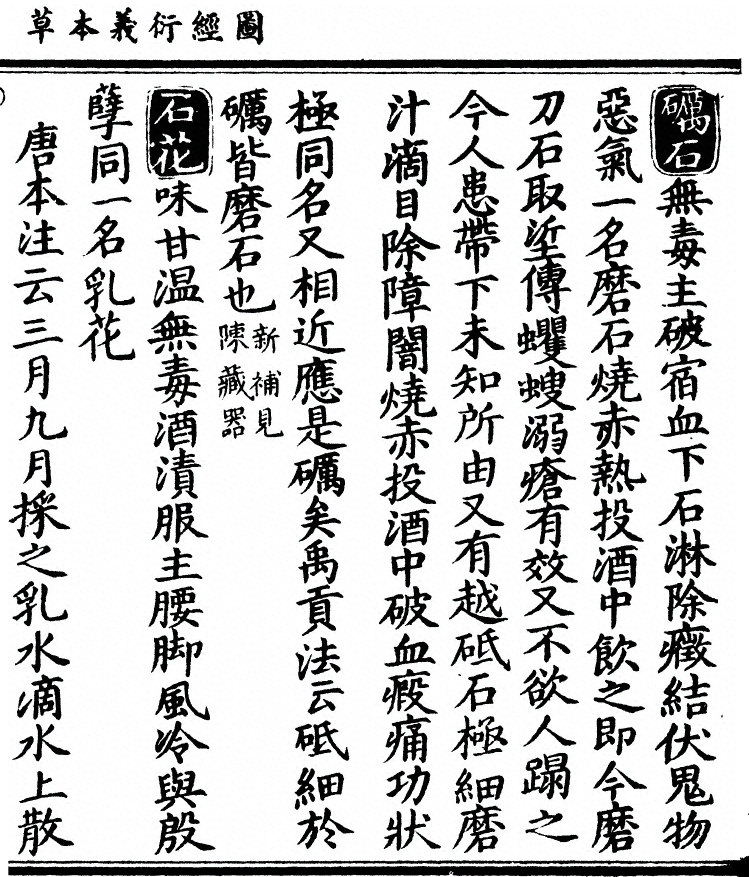 圖經衍義本草
礪石無毒主破宿血下石淋除癥結伏鬼物
惡氣一名磨石燒赤熱投酒中飲之即今磨
刀石取垽傅蠼螋溺瘡有效又不欲人蹋之
今人患帶下未知所由又有越砥石極細磨
汁滴目除障闇燒赤投酒中破血瘕痛功狀
極同名又相近應是礪矣禹貢法云砥細於
礪皆磨石也新補見
陳藏器
石花味甘温無毒酒漬服主腰脚風冷與殷
孽同一名乳花
唐本注云三月九月採之乳水滴水上散